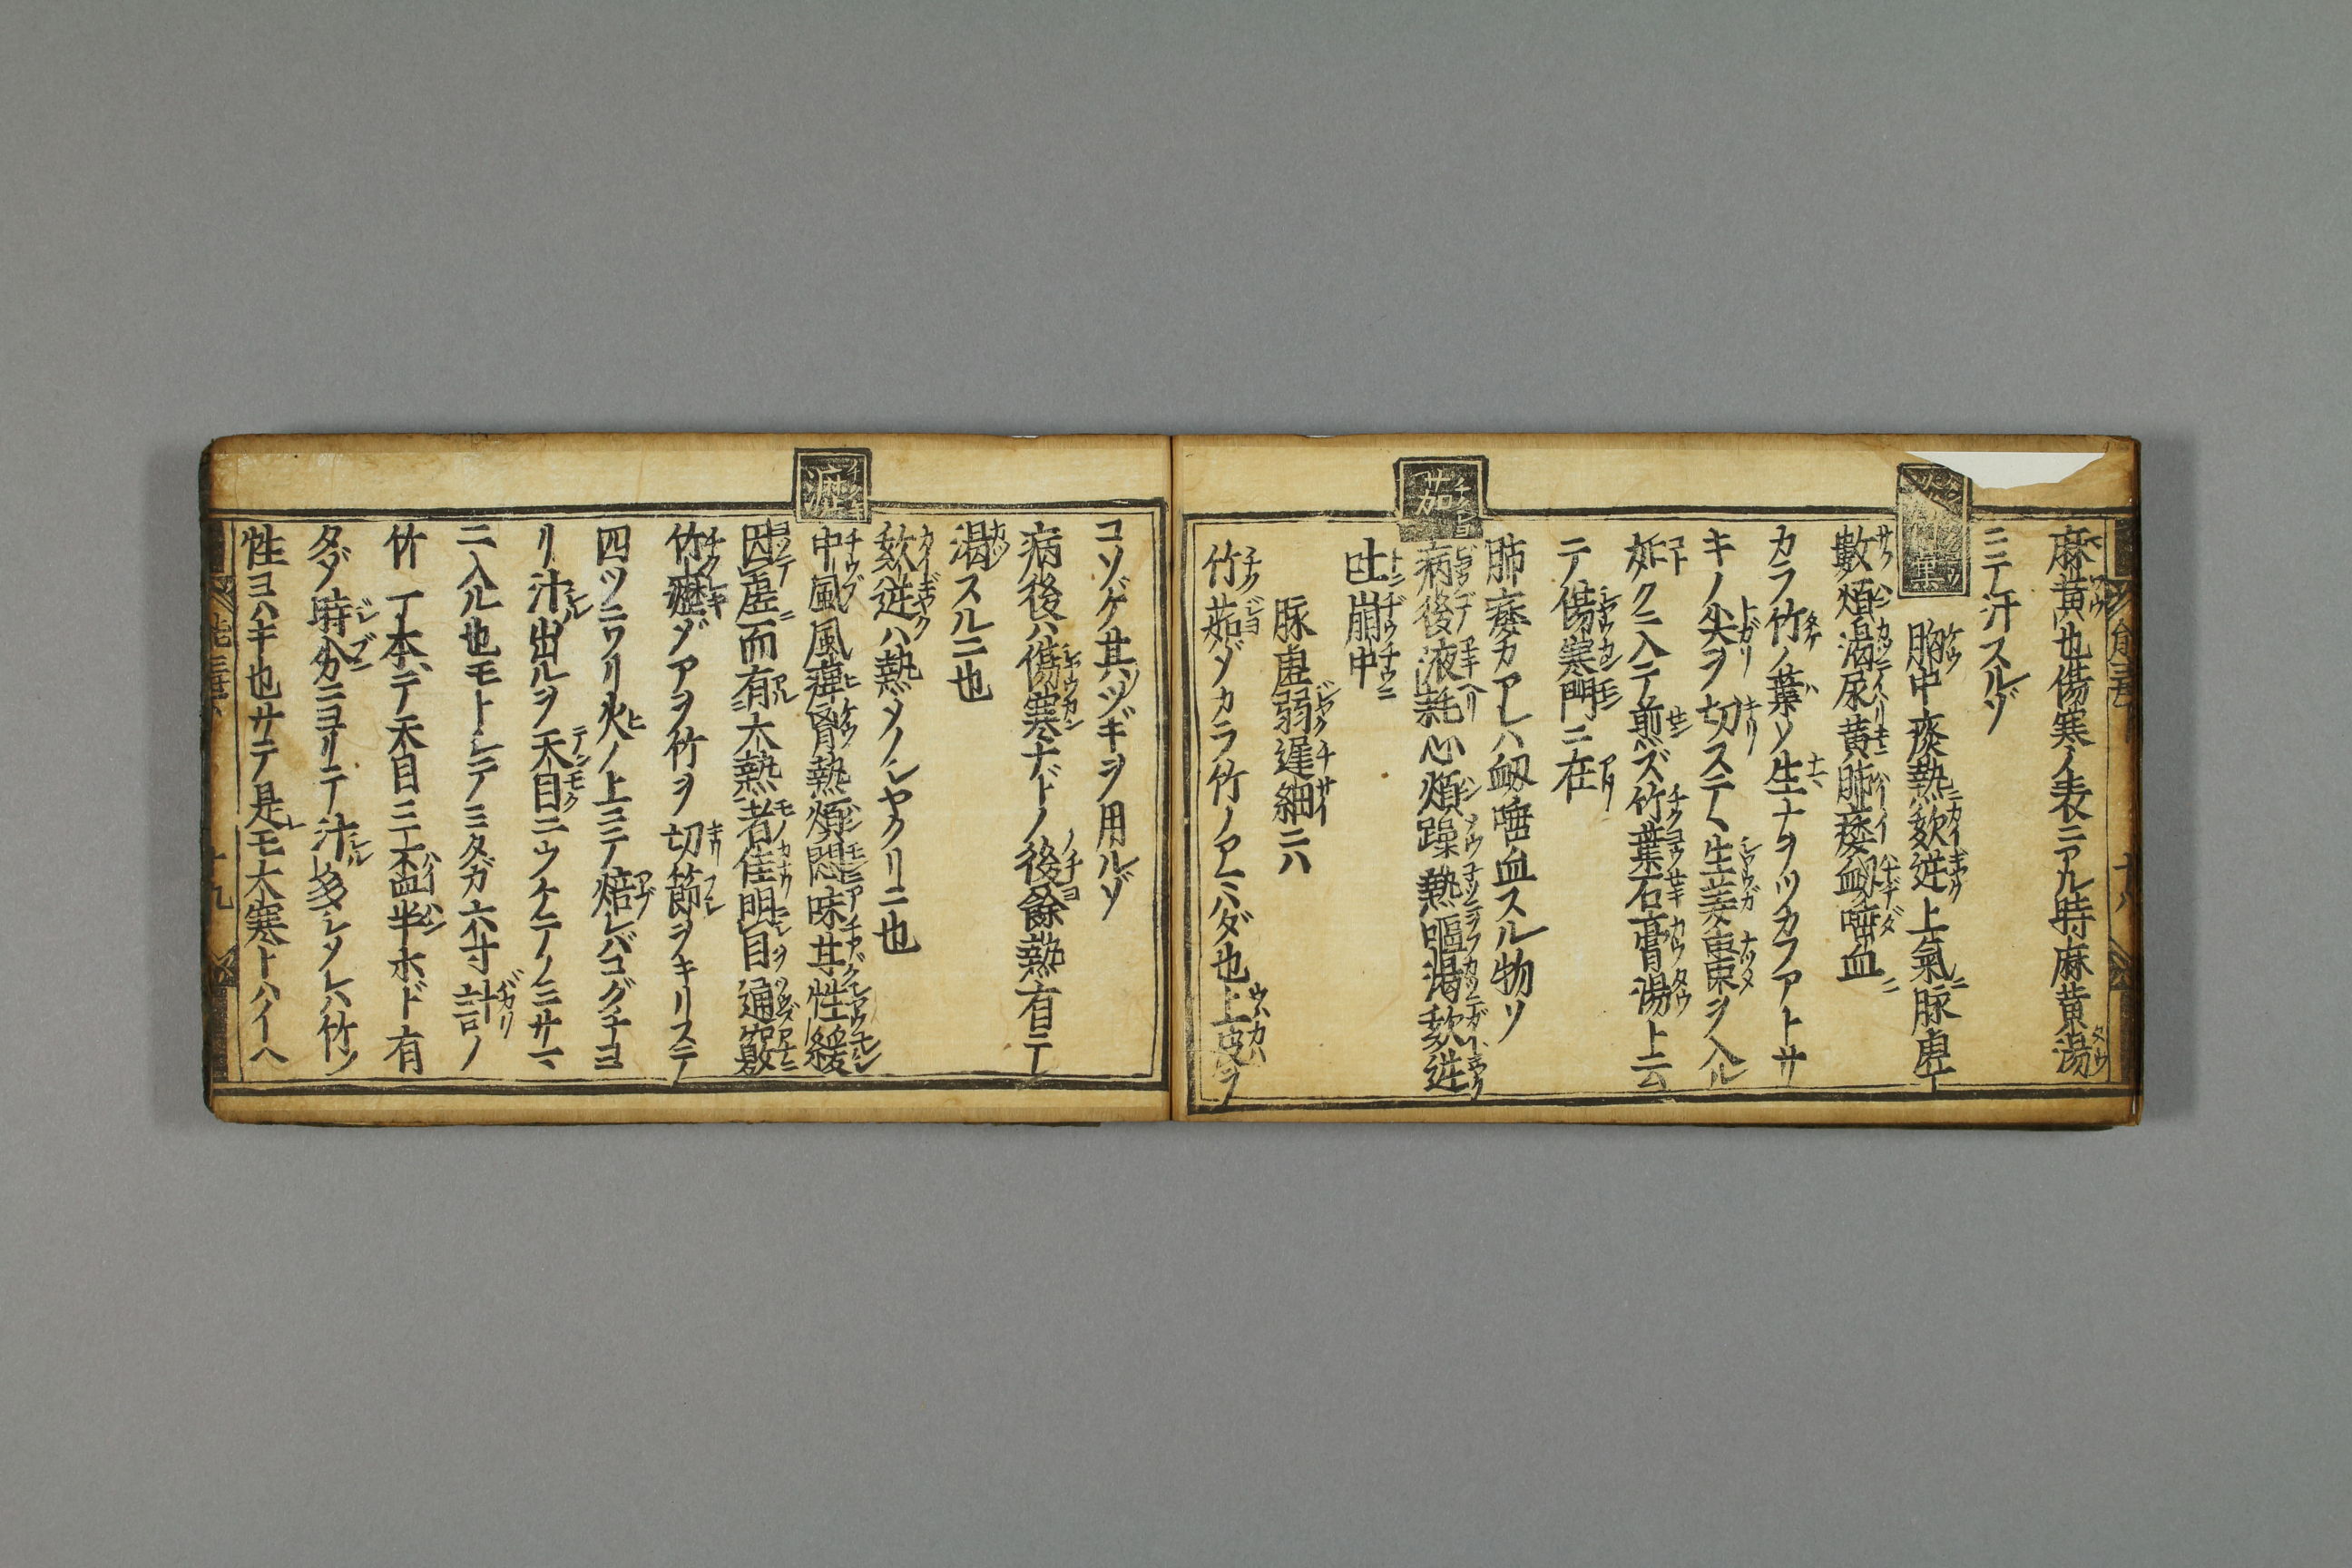 麻黄也傷寒ノ表ニアル時麻黄湯
ニテ汗スルゾ
胸中痰熱欬逆上氣脉虚
數煩渇尿黄肺痿衂唾血
カラ竹ノ葉ソ生ナヲツカフアトサ
キノ尖ヲ切ステヽ生姜棗ヲ入ル
如クニ入テ煎ズ竹葉石膏湯ト云
テ傷寒門ニ在
肺痿カアレハ衂唾血スル物ソ
茹
病後液耗心煩躁熱嘔渇欬逆
吐崩中
脉虚弱遲細ニハ
竹茹ゾカラ竹ノアヽハダ也上皮ヲ
コソゲ其ツギヲ用ルゾ
病後ハ傷寒ナドノ後餘熱有テ
渇スルニ也
欬逆ハ熱メノシヤクリニ也
瀝
中風風痺胃熱煩悶味甘性緩
因虚而有大熱者佳明目通竅
竹瀝ゾアヲ竹ヲ切節ヲキリステ
四ツニワリ火ノ上ニテ焙レバコグチヨ
リ汁出ルヲ天目ニウケテノミサマ
ニ入ル也モトシテミタガ六寸計ノ
竹一本ニテ天目ニ一盃半ホド有
タゾ時分ニヨリテ汁多シメレハ竹ソ
性ヨハキ也サテ是モ大寒トハイヘ